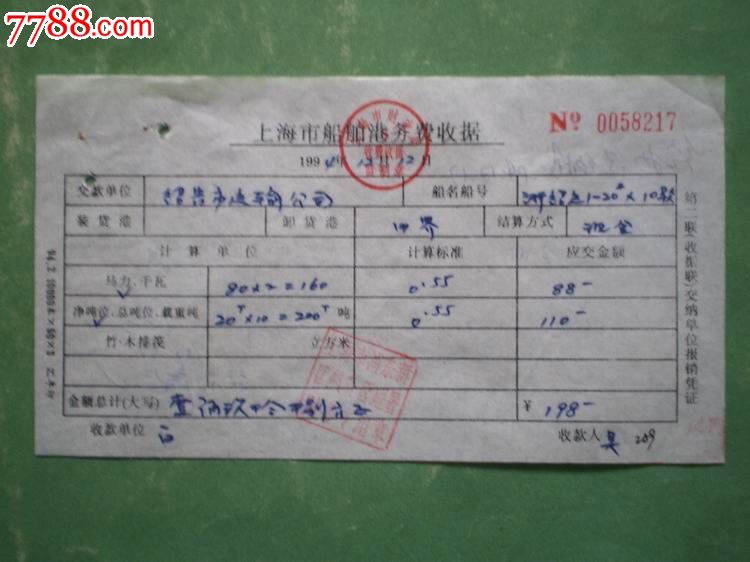 7788.com
中国收藏热线
上海市船舶港务费收据
№ 0058217
1994年12月12日
交款单位 运输公司 船名船号 1-20# × 10
装货港 卸货港 结算方式 现金
计算单位 计算标准 应交金额
马力、千瓦 80×2=160 0.55 88—
净吨位、总吨位、载重吨 20T×10=200T 吨 0.55 110—
竹、木排筏 立方米
金额总计(大写) 壹佰玖拾捌元正 ¥ 198—
收款单位 收款人 吴 209
第二联(收据联)交纳单位报销凭证